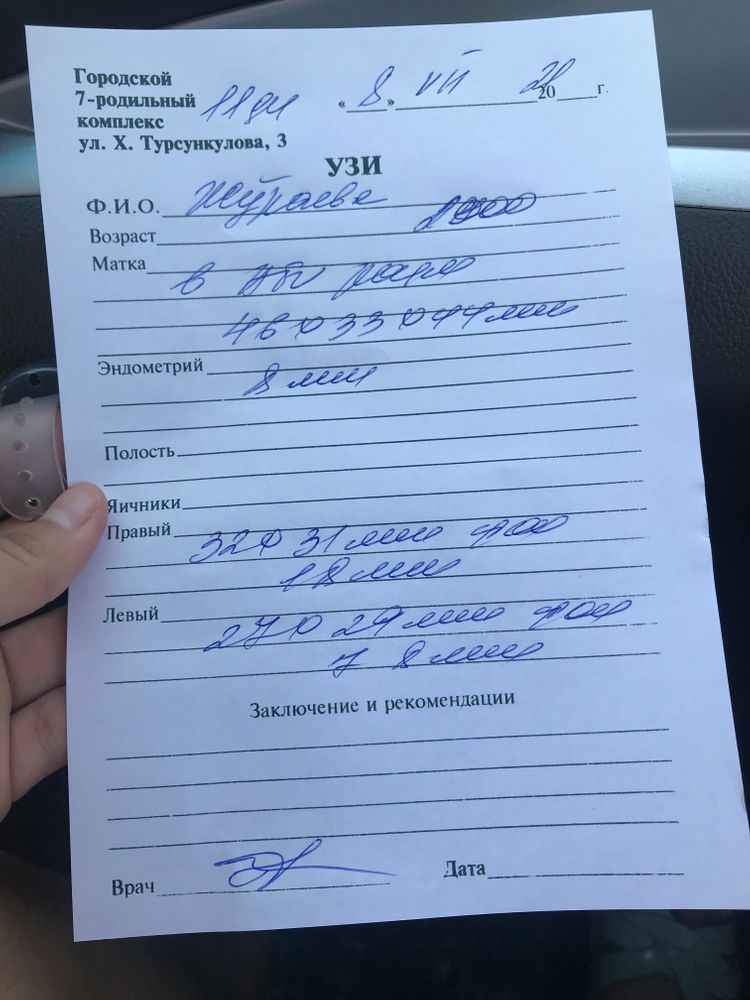 Городской
7-родильный 11 дц « 8 » VII 20 21 г.
комплекс
ул. Х. Турсункулова, 3
УЗИ
Ф.И.О. Жураева
Возраст
Матка
в
46 х 33 х 44 мм
Эндометрий
8 мм
Полость
Яичники
Правый 32 х 31 мм фол
18 мм
Левый 27 х 24 мм фол
7 8 мм
Заключение и рекомендации
Врач Дата